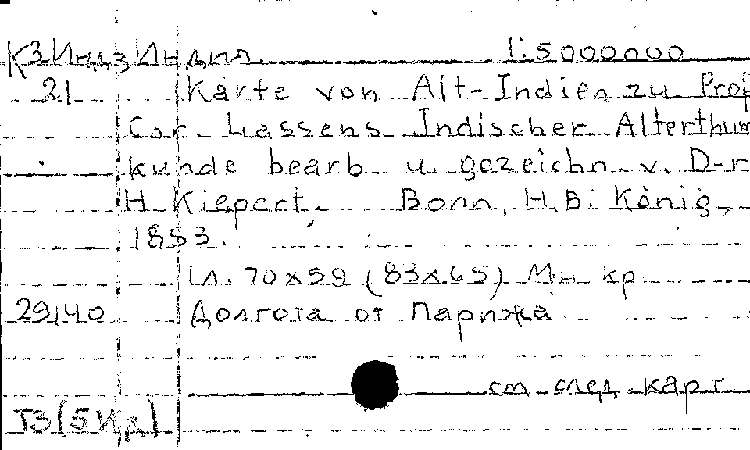 К3Инд3 Индия. 1:5000000
21 Karte von Alt-Indien zu Prof
Car. Lassens Indischer Alterthum
kunde bearb. u. gezeichn. v. D-r
H. Kiepert. Bonn, H.B. König,
1853.
1 л. 70х59 (83х65) Мн. кр.
29140 Долгота от Парижа
см. след. карт
Т3(5Ид)